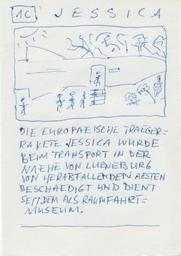 1C JESSICA
DIE EUROPAEISCHE TRAEGER=
RAKETE JESSICA WURDE
BEIM TRANSPORT IN DER
NAEHE VON LUENEBURG
VON HERABFALLENDEN AESTEN
BESCHAEDIGT UND DIENT
SEITDEM ALS RAUMFAHRT=
MUSEUM.